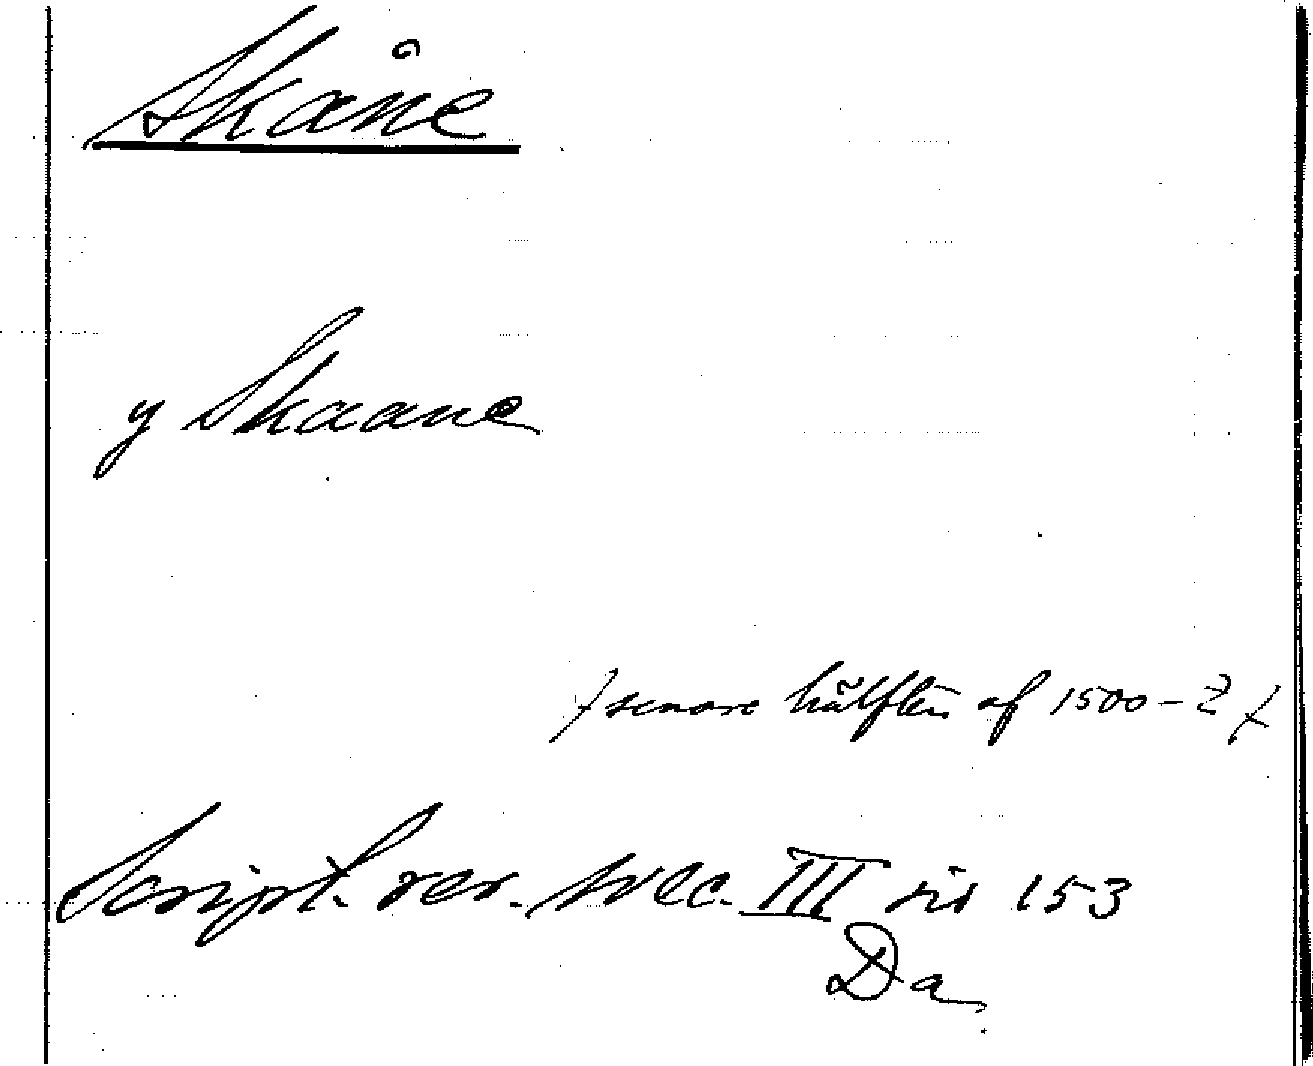 Skåne
y Skaane
/senare hälften af 1500-t/
Script. rer. svec. III sid 153
Da